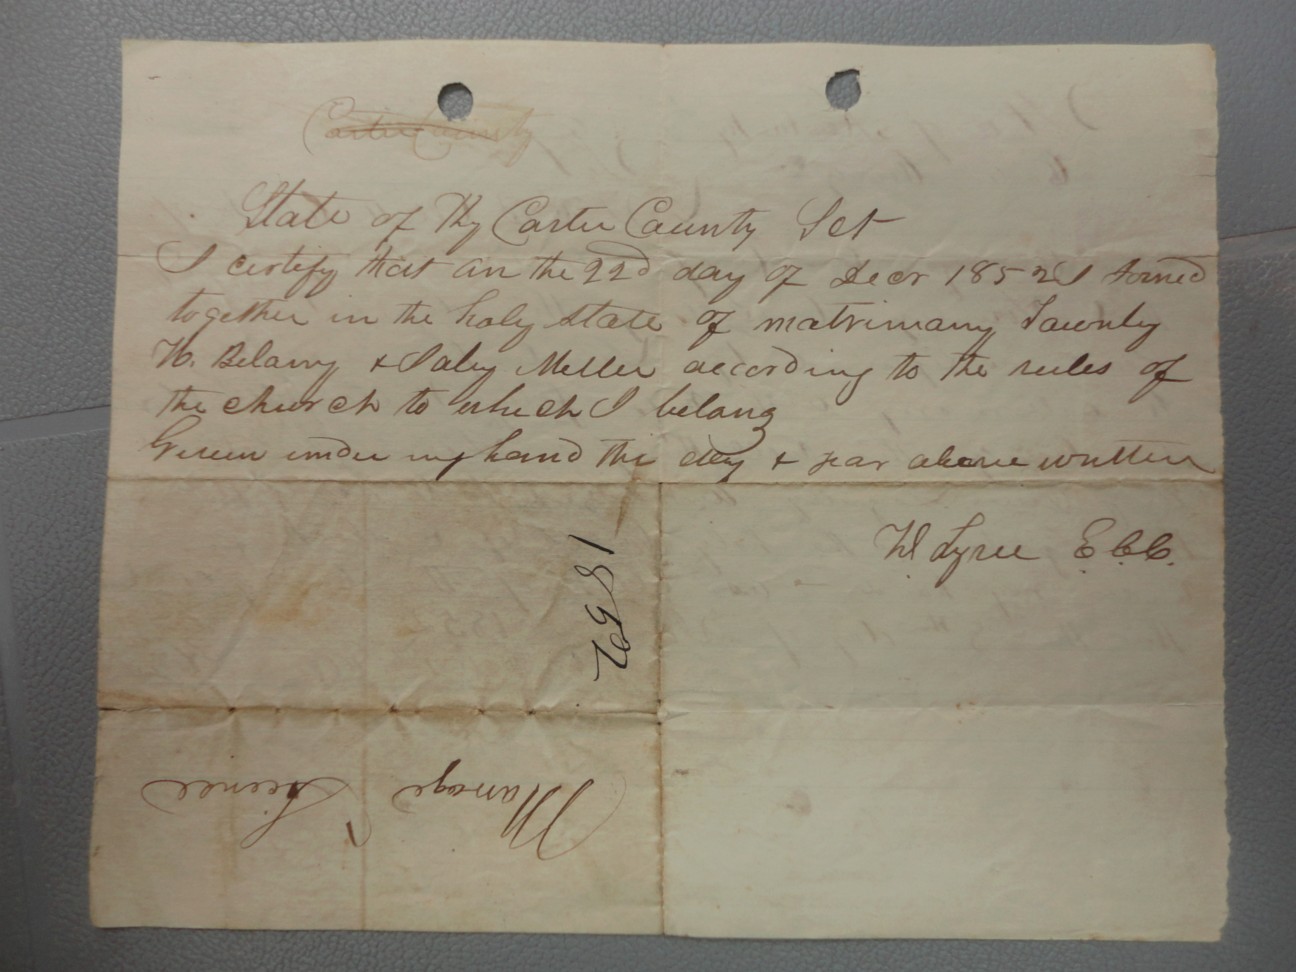 Carter County
State of Ky Carter County Sct
I certify that on the 22d day of Decr 1852 I Joined
together in the holy state of matrimony Townly
W. Belamy & Saley Meller according to the rules of
the church to which I belong
Given under my hand the day & year above written
W. Lyree E. C. C.
1852
Marrage
Licence